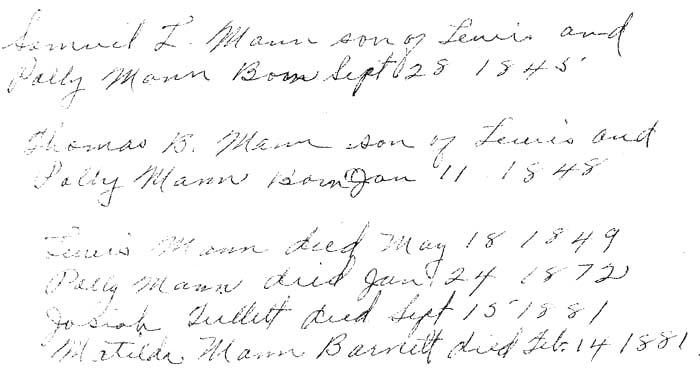 Samuel L. Mann son of Lewis and
Polly Mann Born Sept 28 1845
Thomas B. Mann son of Lewis and
Polly Mann Born Jan 11 1848
Lewis Mann died May 18 1849
Polly Mann died Jan 24 1872
Josiah Tullett died Sept 15 1881
Matilda Mann Barnett died Feb. 14 1881.